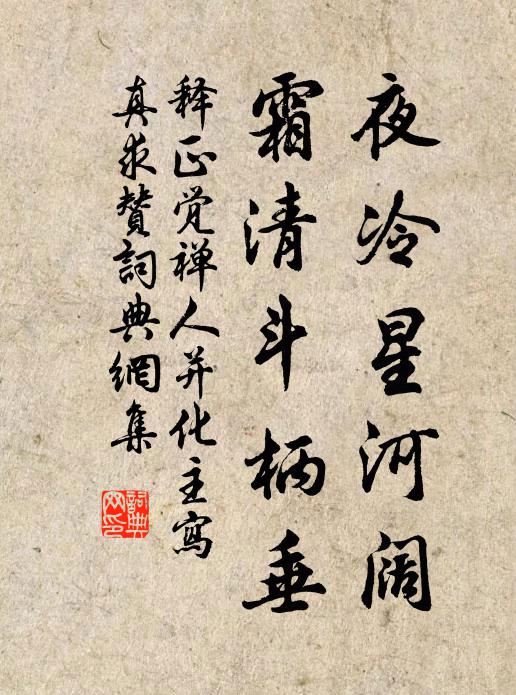 夜冷星河阔
霜清斗柄垂
释正觉禅人并化主寫
真求赞詞典網集
詞典网印